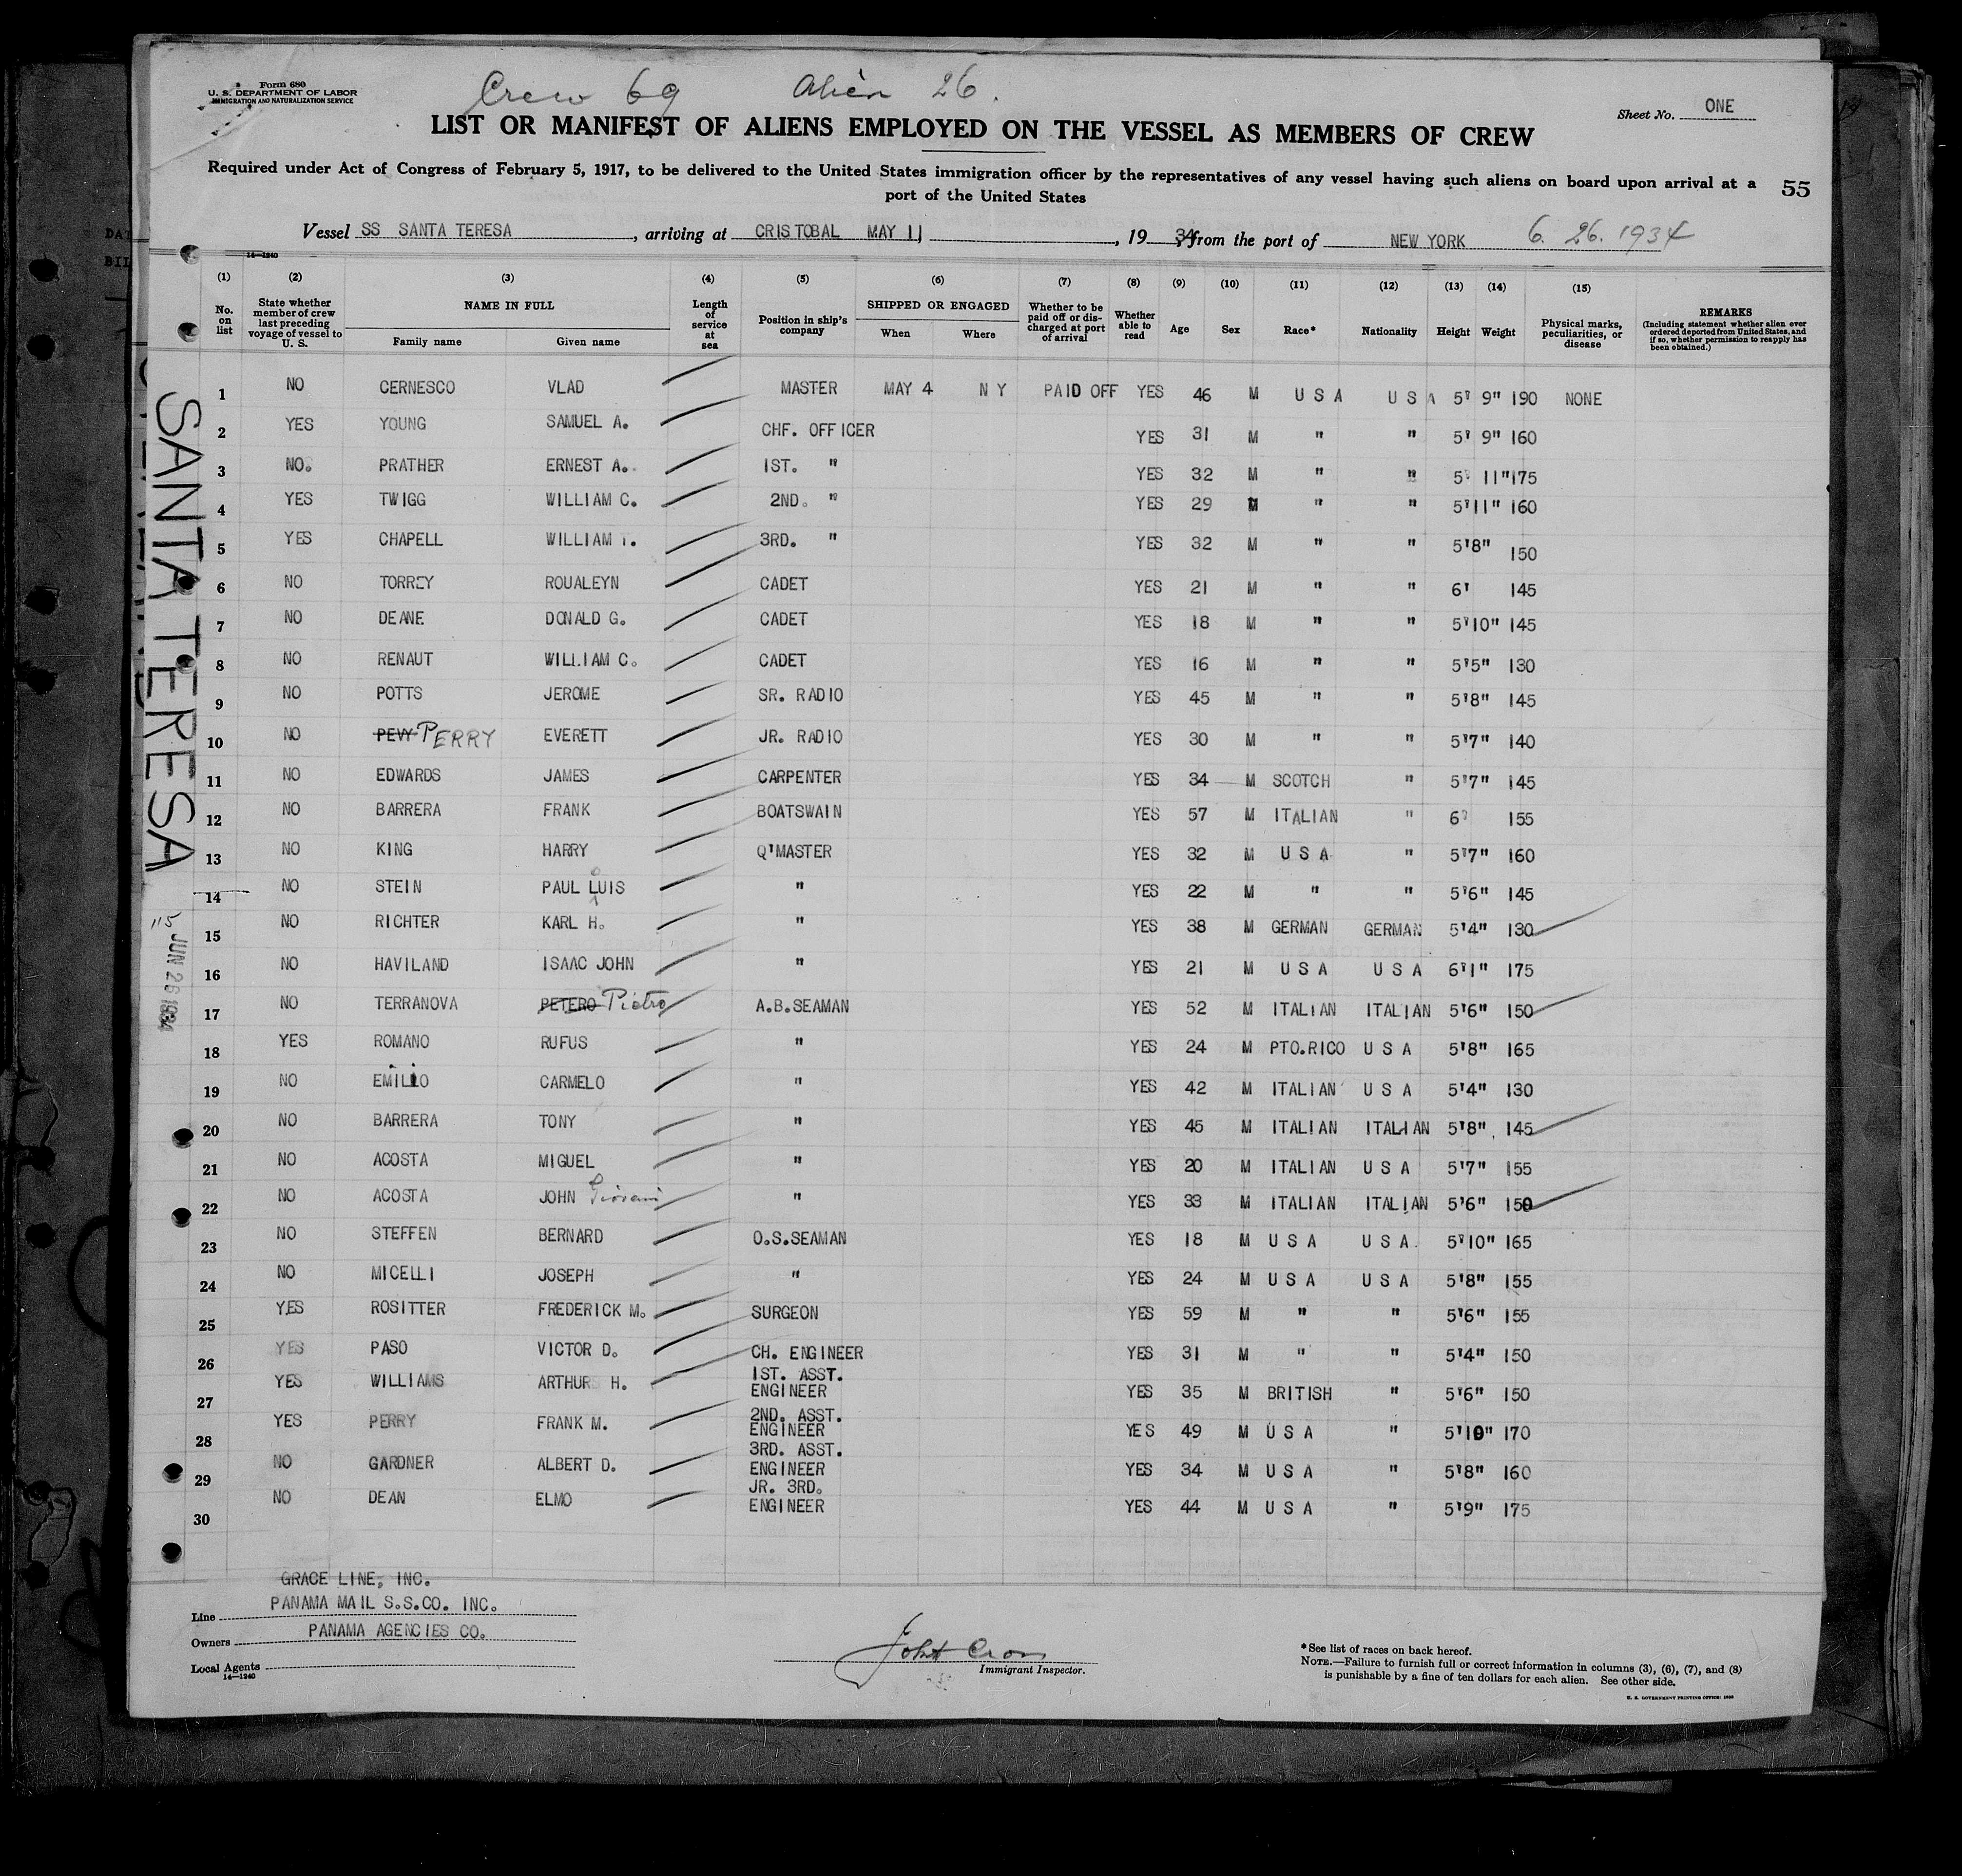 Form 680
U. S. DEPARTMENT OF LABOR
IMMIGRATION AND NATURALIZATION SERVICE
Crew 69 Alien 26.
Sheet No. ONE
LIST OR MANIFEST OF ALIENS EMPLOYED ON THE VESSEL AS MEMBERS OF CREW
Required under Act of Congress of February 5, 1917, to be delivered to the United States immigration officer by the representatives of any vessel having such aliens on board upon arrival at a
port of the United States
55
Vessel SS SANTA TERESA, arriving at CRISTOBAL MAY 11, 1934, from the port of NEW YORK 6. 26. 1934
14—1240
(1) (2) (3) (4) (5) (6) (7) (8) (9) (10) (11) (12) (13) (14) (15)
No. on list
State whether member of crew last preceding voyage of vessel to U. S.
NAME IN FULL
Family name Given name
Length of service at sea
Position in ship's company
SHIPPED OR ENGAGED
When Where
Whether to be paid off or discharged at port of arrival
Whether able to read
Age Sex Race* Nationality Height Weight
Physical marks, peculiarities, or disease
REMARKS
(Including statement whether alien ever ordered deported from United States, and if so, whether permission to reapply has been obtained.)
1 NO CERNESCO VLAD MASTER MAY 4 N Y PAID OFF YES 46 M U S A U S A 5' 9" 190 NONE
2 YES YOUNG SAMUEL A. CHF. OFFICER YES 31 M " " 5' 9" 160
3 NO. PRATHER ERNEST A. 1ST. " YES 32 M " " 5' 11" 175
4 YES TWIGG WILLIAM C. 2ND. " YES 29 M " " 5'11" 160
5 YES CHAPELL WILLIAM T. 3RD. " YES 32 M " " 5'8" 150
6 NO TORREY ROUALEYN CADET YES 21 M " " 6' 145
7 NO DEANE DONALD G. CADET YES 18 M " " 5'10" 145
8 NO RENAUT WILLIAM C. CADET YES 16 M " " 5'5" 130
9 NO POTTS JEROME SR. RADIO YES 45 M " " 5'8" 145
10 NO PEVY PERRY EVERETT JR. RADIO YES 30 M " " 5'7" 140
11 NO EDWARDS JAMES CARPENTER YES 34 M SCOTCH " 5'7" 145
12 NO BARRERA FRANK BOATSWAIN YES 57 M ITALIAN " 6' 155
13 NO KING HARRY Q'MASTER YES 32 M U S A " 5'7" 160
14 NO STEIN PAUL LoUIS " YES 22 M " " 5'6" 145
15 NO RICHTER KARL H. " YES 38 M GERMAN GERMAN 5'4" 130
16 NO HAVILAND ISAAC JOHN " YES 21 M U S A U S A 6'1" 175
17 NO TERRANOVA PETERO Pietro A.B.SEAMAN YES 52 M ITALIAN ITALIAN 5'6" 150
18 YES ROMANO RUFUS " YES 24 M PTO.RICO U S A 5'8" 165
19 NO EMILIO CARMELO " YES 42 M ITALIAN U S A 5'4" 130
20 NO BARRERA TONY " YES 45 M ITALIAN ITALIAN 5'8" 145
21 NO ACOSTA MIGUEL " YES 20 M ITALIAN U S A 5'7" 155
22 NO ACOSTA JOHN Giovani " YES 33 M ITALIAN ITALIAN 5'6" 150
23 NO STEFFEN BERNARD O.S.SEAMAN YES 18 M U S A U S A. 5'10" 165
24 NO MICELLI JOSEPH " YES 24 M U S A U S A 5'8" 155
25 YES ROSITTER FREDERICK M. SURGEON YES 59 M " " 5'6" 155
26 YES PASO VICTOR D. CH. ENGINEER YES 31 M " " 5'4" 150
27 YES WILLIAMS ARTHUR H. 1ST. ASST. ENGINEER YES 35 M BRITISH " 5'6" 150
28 YES PERRY FRANK M. 2ND. ASST. ENGINEER YES 49 M U S A " 5'10" 170
29 NO GARDNER ALBERT D. 3RD. ASST. ENGINEER YES 34 M U S A " 5'8" 160
30 NO DEAN ELMO JR. 3RD. ENGINEER YES 44 M U S A " 5'9" 175
SANTA TERESA
115 JUN 26 1934
GRACE LINE, INC.
Line PANAMA MAIL S.S.CO. INC.
Owners PANAMA AGENCIES CO.
Local Agents
14—1240
Immigrant Inspector.
*See list of races on back hereof.
NOTE.—Failure to furnish full or correct information in columns (3), (6), (7), and (8)
is punishable by a fine of ten dollars for each alien. See other side.